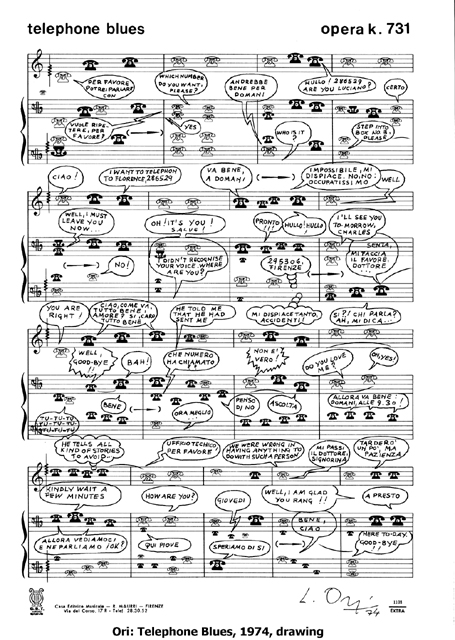 telephone blues
opera k. 731
PER FAVORE
POTREI PARLARE
CON
WHICH NUMBER
DO YOU WANT,
PLEASE?
ANDREBBE
BENE PER
DOMANI
HULLO! 286529
ARE YOU LUCIANO?
CERTO
VUOLE RIPE-
TERE, PER
FAVORE?
YES
WHO IS IT
STEP INTO
BOX NO 8,
PLEASE
CIAO!
I WANT TO TELEPHON
TO FLORENCE, 286529
VA BENE,
A DOMANI
IMPOSSIBILE, MI
DISPIACE. NO, NO:
OCCUPATISSIMO
WELL
WELL, I MUST
LEAVE YOU
NOW...
OH! IT'S YOU!
SALVE!
PRONTO
!!!
HULLO! HULLO
I'LL SEE YOU
TO-MORROW,
CHARLES
NO!
I DIDN'T RECOGNISE
YOUR VOICE. WHERE
ARE YOU?
295306,
FIRENZE
SENTA,
MI FACCIA
IL FAVORE,
DOTTORE
...
YOU ARE
RIGHT!
CIAO, COME VA,
TUTTO BENE,
AMORE? SI, CARO
TUTTO BENE
HE TOLD ME
THAT HE HAD
SENT ME
MI DISPIACE TANTO.
ACCIDENTI!
SI?! CHI PARLA?
AH, MI DICA...
WELL,
GOOD-BYE
!!
BAH!
CHE NUMERO
HA CHIAMATO
NON E'
VERO!
DO YOU LOVE
ME?
OH, YES!
BENE
ORA MEGLIO
PENSO
DI NO
ASCOLTA
ALLORA VA BENE:
DOMANI, ALLE 9.30!
TU-TU-TU
TU-TU-TU
TU-TU-TU
HE TELLS ALL
KIND OF STORIES
TO AVOID...
UFFICIO TECNICO
PER FAVORE
WE WERE WRONG IN
HAVING ANYTHING TO
DO WITH SUCH A PERSON
MI PASSI
IL DOTTORE,
SIGNORINA
TARDERO'
UN PO', MA
PAZIENZA
KINDLY WAIT A
FEW MINUTES
HOW ARE YOU?
GIOVEDI
WELL, I AM GLAD
YOU RANG!!
A PRESTO
ALLORA VEDIAMOCI
E NE PARLIAMO (OK?
QUI PIOVE
SPERIAMO DI SI
BENE,
CIAO
HERE TO-DAY.
GOOD-BYE
!!
Casa Editrice Musicale - FIRENZE
Via del Corso,
L. Ori 74
EXTRA
Ori: Telephone Blues, 1974, drawing